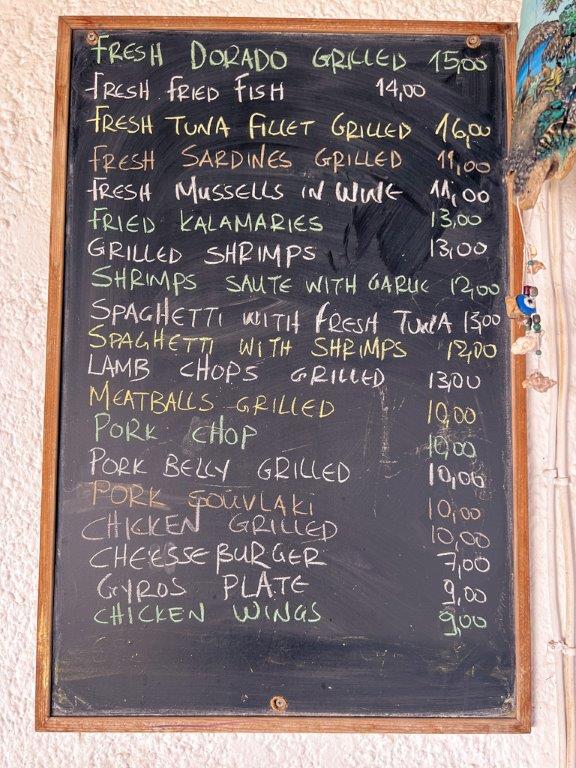 FRESH DORADO GRILLED 15,00
FRESH FRIED FISH 14,00
FRESH TUNA FILLET GRILLED 16,00
FRESH SARDINES GRILLED 11,00
FRESH MUSSELLS IN WINE 11,00
FRIED KALAMARIES 13,00
GRILLED SHRIMPS 13,00
SHRIMPS SAUTE WITH GARLIC 12,00
SPAGHETTI WITH FRESH TUNA 13,00
SPAGHETTI WITH SHRIMPS 12,00
LAMB CHOPS GRILLED 13,00
MEATBALLS GRILLED 10,00
PORK CHOP 10,00
PORK BELLY GRILLED 10,00
PORK SOUVLAKI 10,00
CHICKEN GRILLED 10,00
CHEESSE BURGER 7,00
GYROS PLATE 9,00
CHICKEN WINGS 9,00